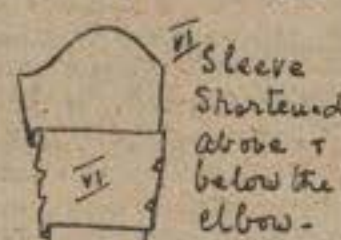 VI
Sleeve
Shortened
above &
below the
elbow.
VI